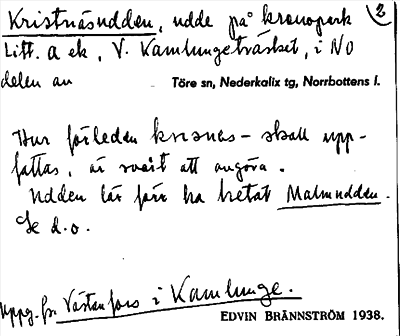 Kristnäsudden, udde på kronopark 2
Litt. a ek, V. Kamlungeträsket, i NO
delen av Töre sn, Nederkalix tg, Norrbottens l.
Hur förleden krisnäs- skall upp-
fattas, är svårt att avgöra.
Udden lär förr ha hetat Malmudden.
Se d.o.
Uppg. fr. Västanfors i Kamlunge.
EDVIN BRÄNNSTRÖM 1938.